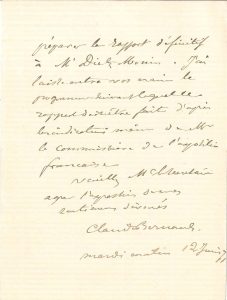 préparer le rapport définitif
à Mr Dietz Monin. J'ai
laissé entre vos mains le
programme suivant lequel le
rapport doit être fait d'après
les indications même de Mr
le commissaire de l'exposition
française
Veuillez Mr
agréer l'expression de mes
sentiments dévoués
Claude Bernard
mardi matin 12